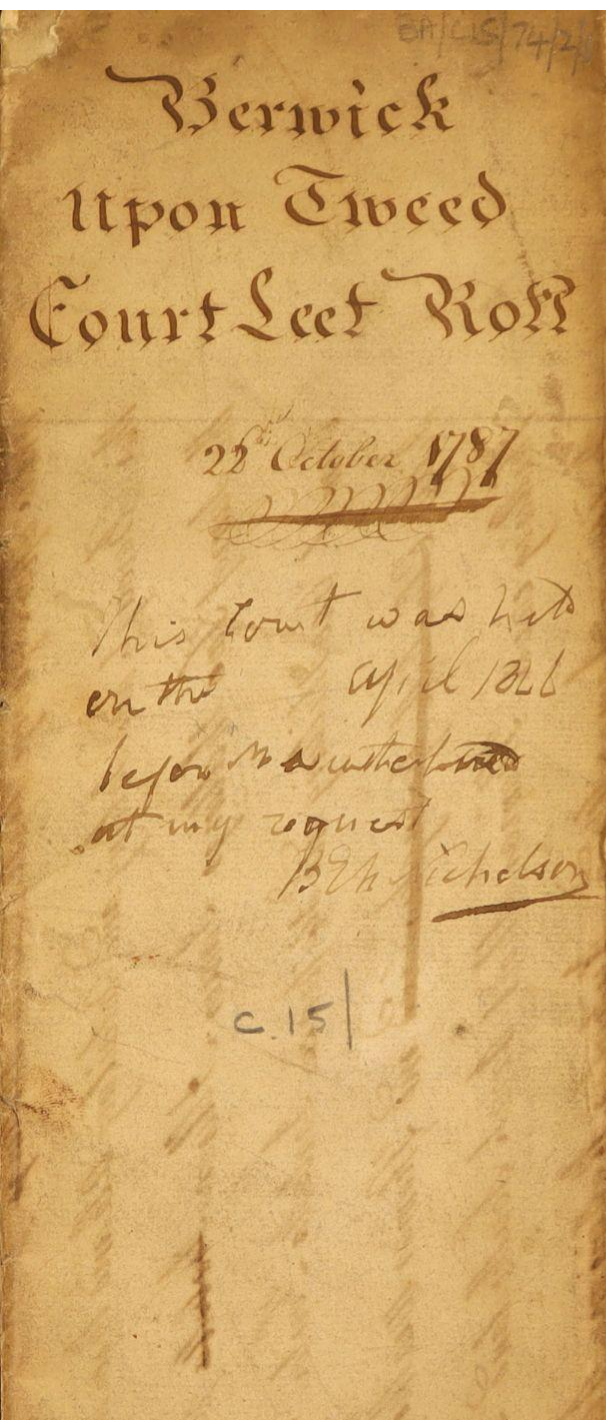 BA/C/15/74/2/
Berwick
Upon Tweed
Court Leet Roll
22th October 1787
This Court was held
on the April
before
at my request
Nicholson
C.15/